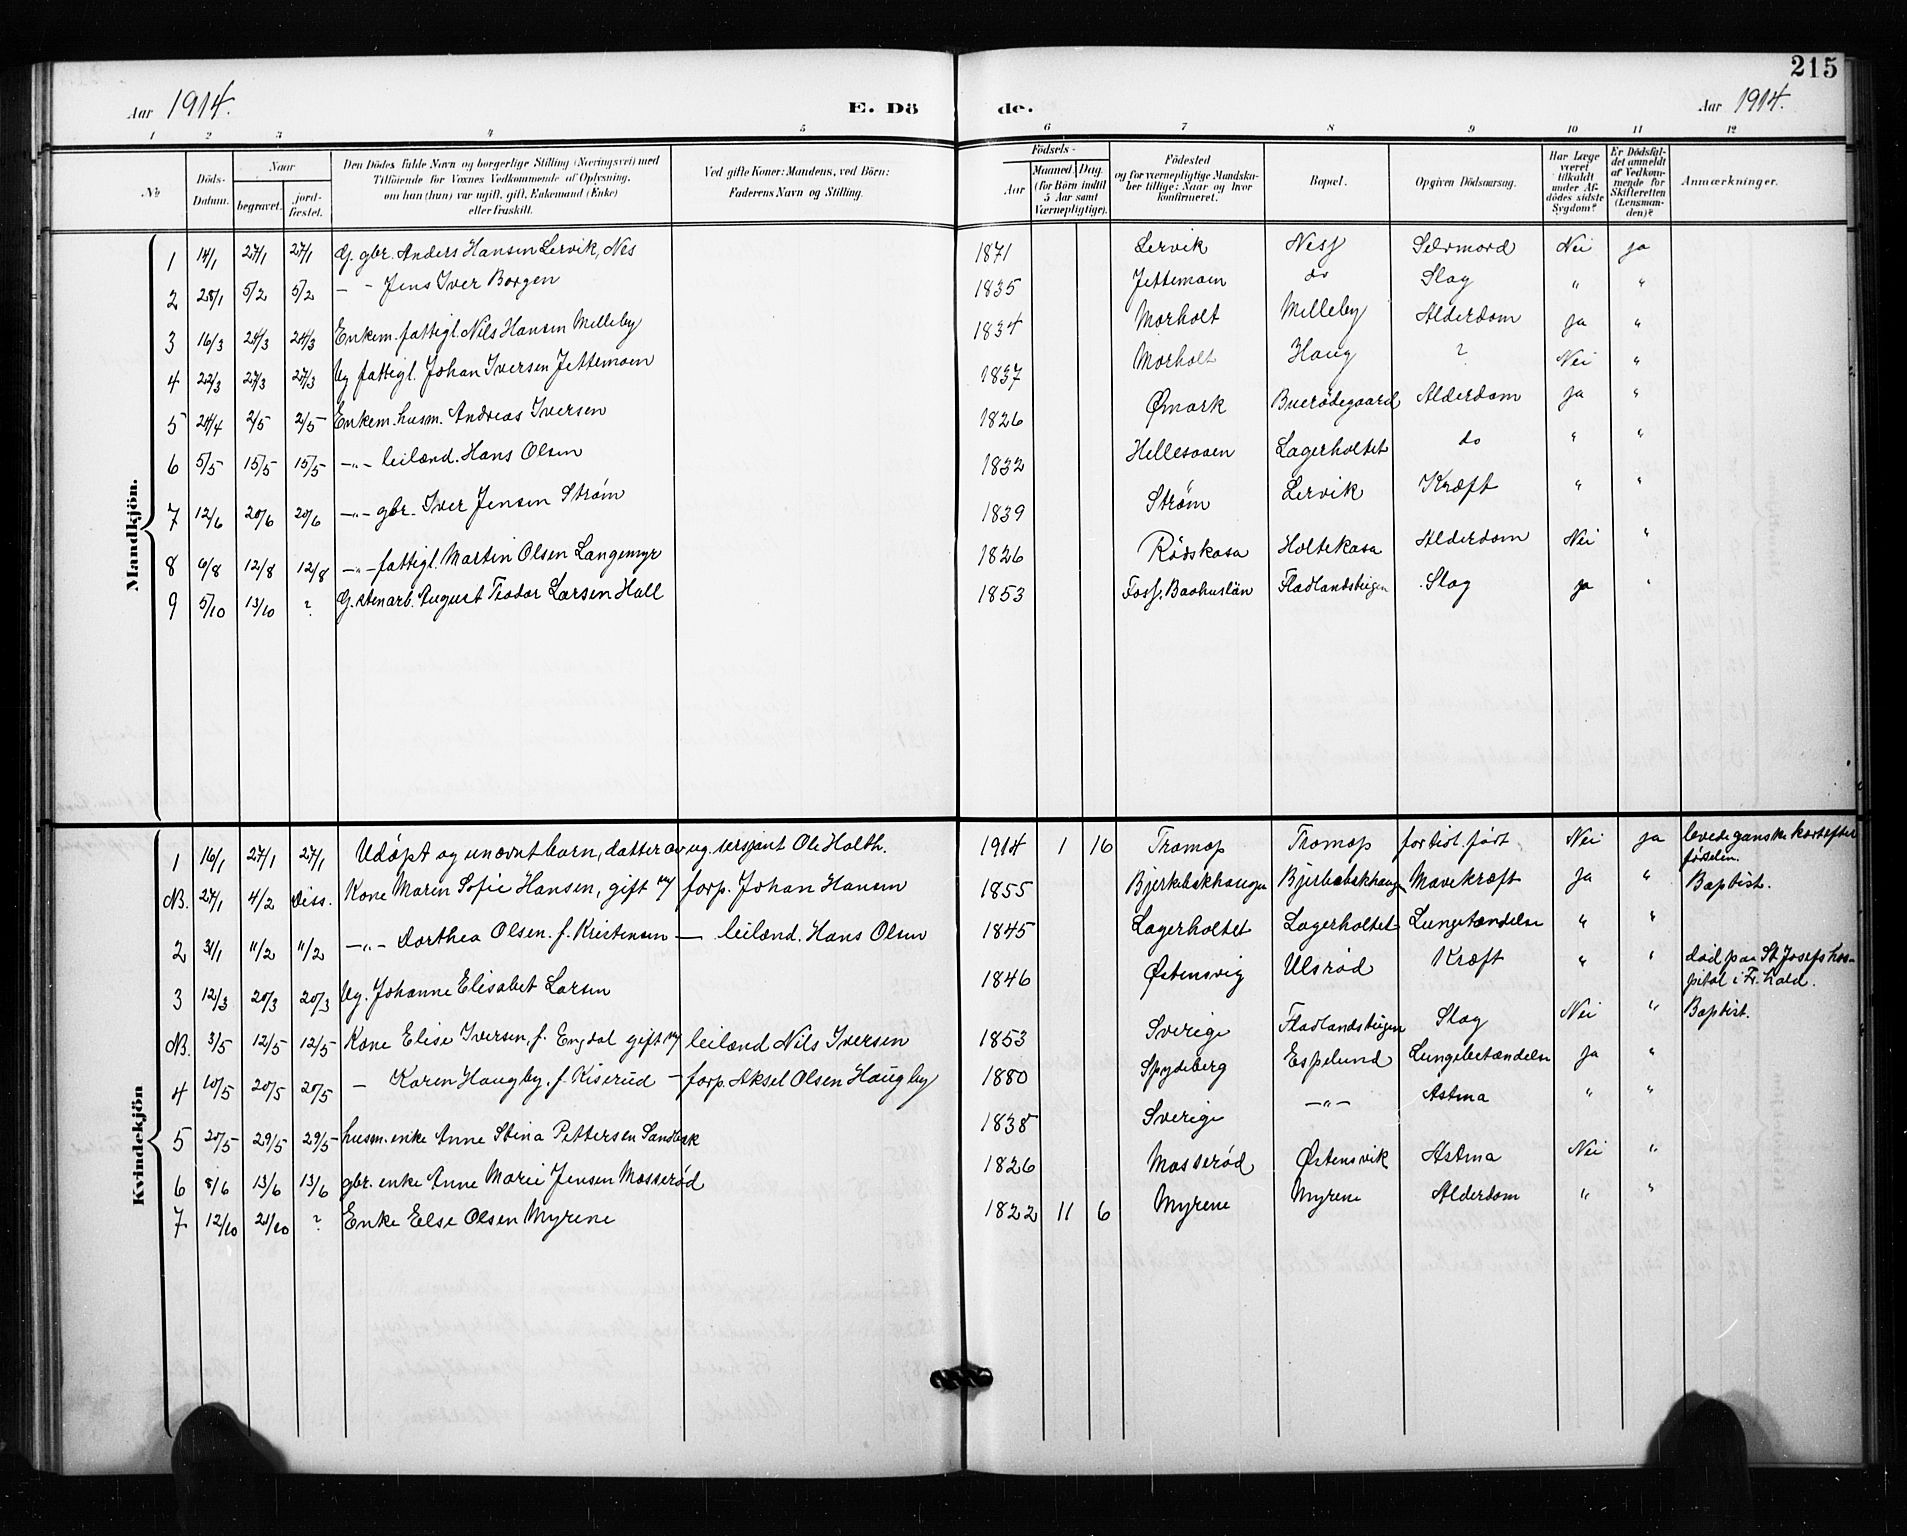 215
Aar 1914. E. Dö de. Aar 1914.
1 2 3 4 5 6 7 8 9 10 11 12
No Döds-Datum. Naar begravet. jord-fæstet. Den Dödes fulde Navn og borgerlige Stilling (Næringsvei) med Tilföiende for Voxnes Vedkommende af Oplysning, om han (hun) var ugift, gift, Enkemand (Enke) eller fraskilt. Ved gifte Koner: Mandens, ved Börn: Faderens Navn og Stilling. Födsels- Aar Maaned. Dag. (for Börn indtil 5 Aar samt Værnepligtige). Födested og for værnepligtige Mandska-ber tillige: Naar og hvor konfirmeret. Bopæl. Opgiven Dödsaarsag. Har Læge været tilkaldt under Af-dödes sidste Sygdom? Er Dödsfal-det anmeldt af Vedkom-mende for Skifteretten (Lensman-den)? Anmærkninger.
Mandkjön.
1 14/1 27/1 27/1 G. gbr. Anders Hansen Lervik, Nes 1871 Lervik Ness Selvmord Nei ja
2 28/1 5/2 5/2 — - Jens Iver Borgen 1835 Jettemoen do Slag " "
3 16/3 24/3 24/3 Enkem. fattigl. Nils Hansen Milleby 1834 Morholt Milleby Alderdom ja "
4 22/3 27/3 27/3 Ug fattigl. Johan Iversen Jettemoen 1837 Morholt Haug ? Nei "
5 24/4 2/5 2/5 Enkem. husm. Andreas Iversen 1826 Ømark Buerødegaard Alderdom ja "
6 5/5 15/5 15/5 —"— leilænd. Hans Olsen 1832 Hellesaaen Lagerholtet do " "
7 12/6 20/6 20/6 —"— gbr. Iver Jensen Strøm 1839 Strøm Lervik Kræft " "
8 6/8 12/8 12/8 —"— fattigl. Martin Olsen Langemyr 1826 Rødskasa Holtekasa Alderdom Nei "
9 5/10 13/10 ? G. stenarb. August Teodor Larsen Hall 1853 Foss, Baahuslän Fladlandsteigen Slag ja "
Kvindekjön
1 16/1 27/1 27/1 Udøpt og unævnt barn, datter av ug. sersjant Ole Holth. 1914 1 16 Tromop Tromop for tidl. født Nei ja levede ganske kort efter
fødselen.
NB. 27/1 4/2 Diss. Kone Maren Sofie Hansen, gift m/ forp. Johan Hansen 1855 Bjerkebakhaugen Bjerkebakhaug Mavekræft ja " Baptist.
2 31/1 11/2 11/2 —"— Dorthea Olsen. f. Kristensen — leilænd. Hans Olsen 1845 Lagerholtet Lagerholtet Lungetændelse " "
3 12/3 20/3 20/3 Ug. Johanne Elisabet Larsen 1846 Østensvig Ulsrød Kræft " " død paa St. Josefs hos-
pital i Fr.hald.
NB. 3/5 12/5 12/5 Kone Elise Iversen, f. Engdal gift m/ leilænd Nils Iversen 1853 Sverige Fladlandsteigen Slag Nei " Baptist.
4 10/5 20/5 20/5 — Karen Haugby, f. Kiserud — forp. Aksel Olsen Haugby 1880 Spydeberg Espelund Lungebetændelse ja "
5 20/5 29/5 29/5 husm. enke Anne Stina Pettersen Sandbæk 1838 Sverige —"— Astma " "
6 8/6 13/6 13/6 gbr. enke Anne Marie Jensen Mosserød 1826 Mosserød Østensvik Astma Nei "
7 12/10 21/10 ? Enke Else Olsen Myrene 1822 11 6 Myrene Myrene Alderdom " "